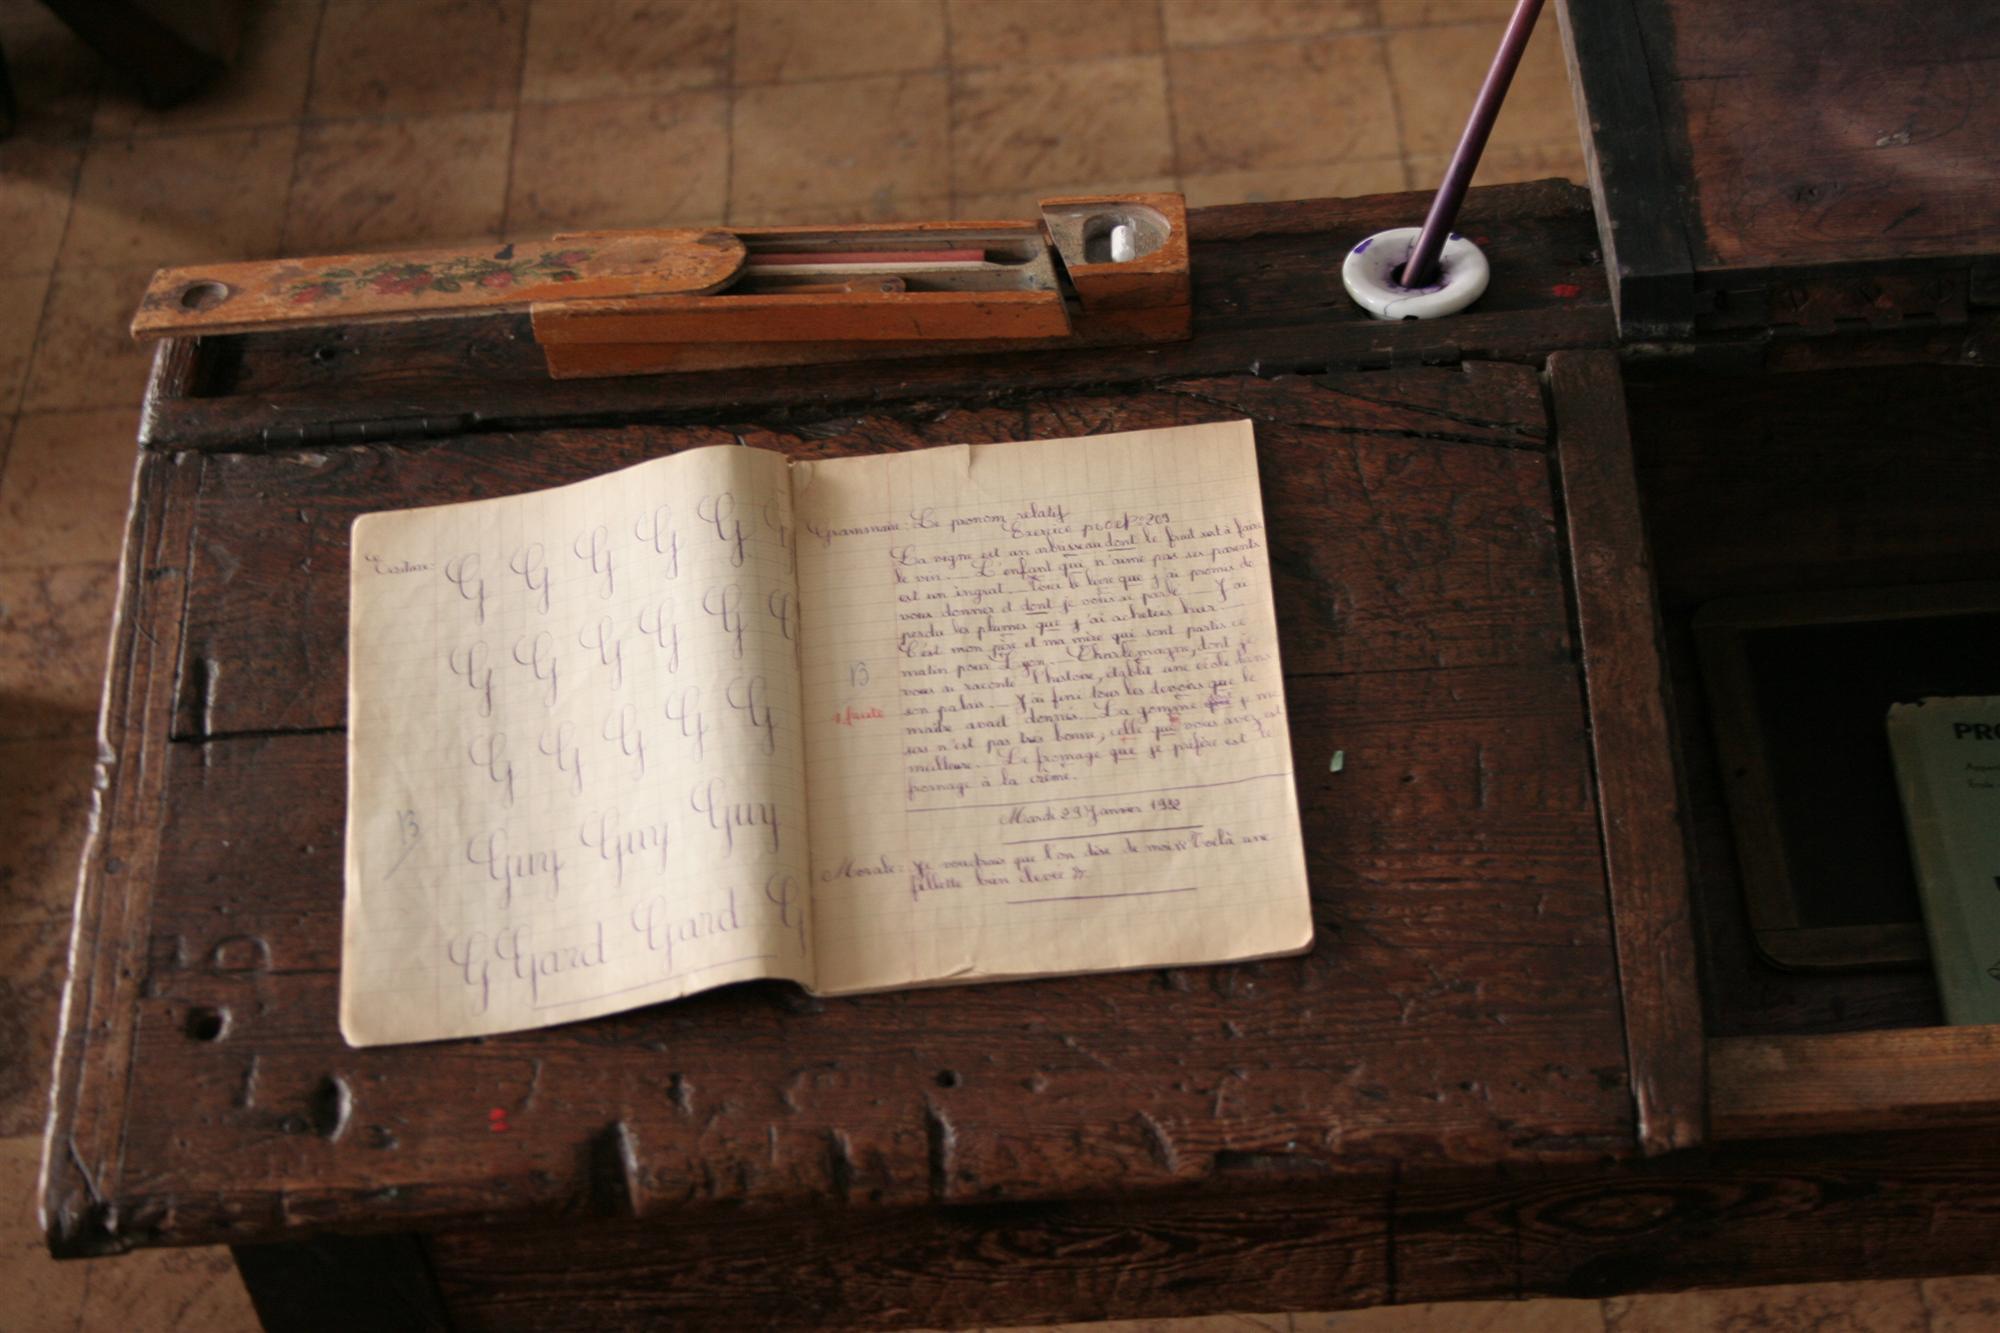 Ecriture:
G G G G G G
G G G G G G
G G G G G
B
Guy Guy Guy
G Gard Gard G
Grammaire: Le pronom relatif
Exercice p.
La vigne est un arbrisseau dont le fruit sert à faire
le vin. _ L'enfant qui n'aime pas ses parents
est un ingrat. _ Voici le livre que j'ai promis de
vous donner et dont je vous ai parlé. _ J'ai
perdu les plumes que j'ai achetées hier. _
C'est mon père et ma mère qui sont partis ce
matin pour Lyon. _ Charlemagne, dont je
B
vous ai raconté l'histoire, établit une école dans
1 faute
son palais. _ J'ai fini tous les devoirs que le
maître avait donnés. _ La gomme je me
sers n'est pas très bonne, celle que vous avez est
meilleure. _ Le fromage que je préfère est le
fromage à la crème.
Mardi 29 Janvier 1932
Morale: Je voudrais que l'on dise de moi: « Voilà une
fillette bien élevée »
PRO